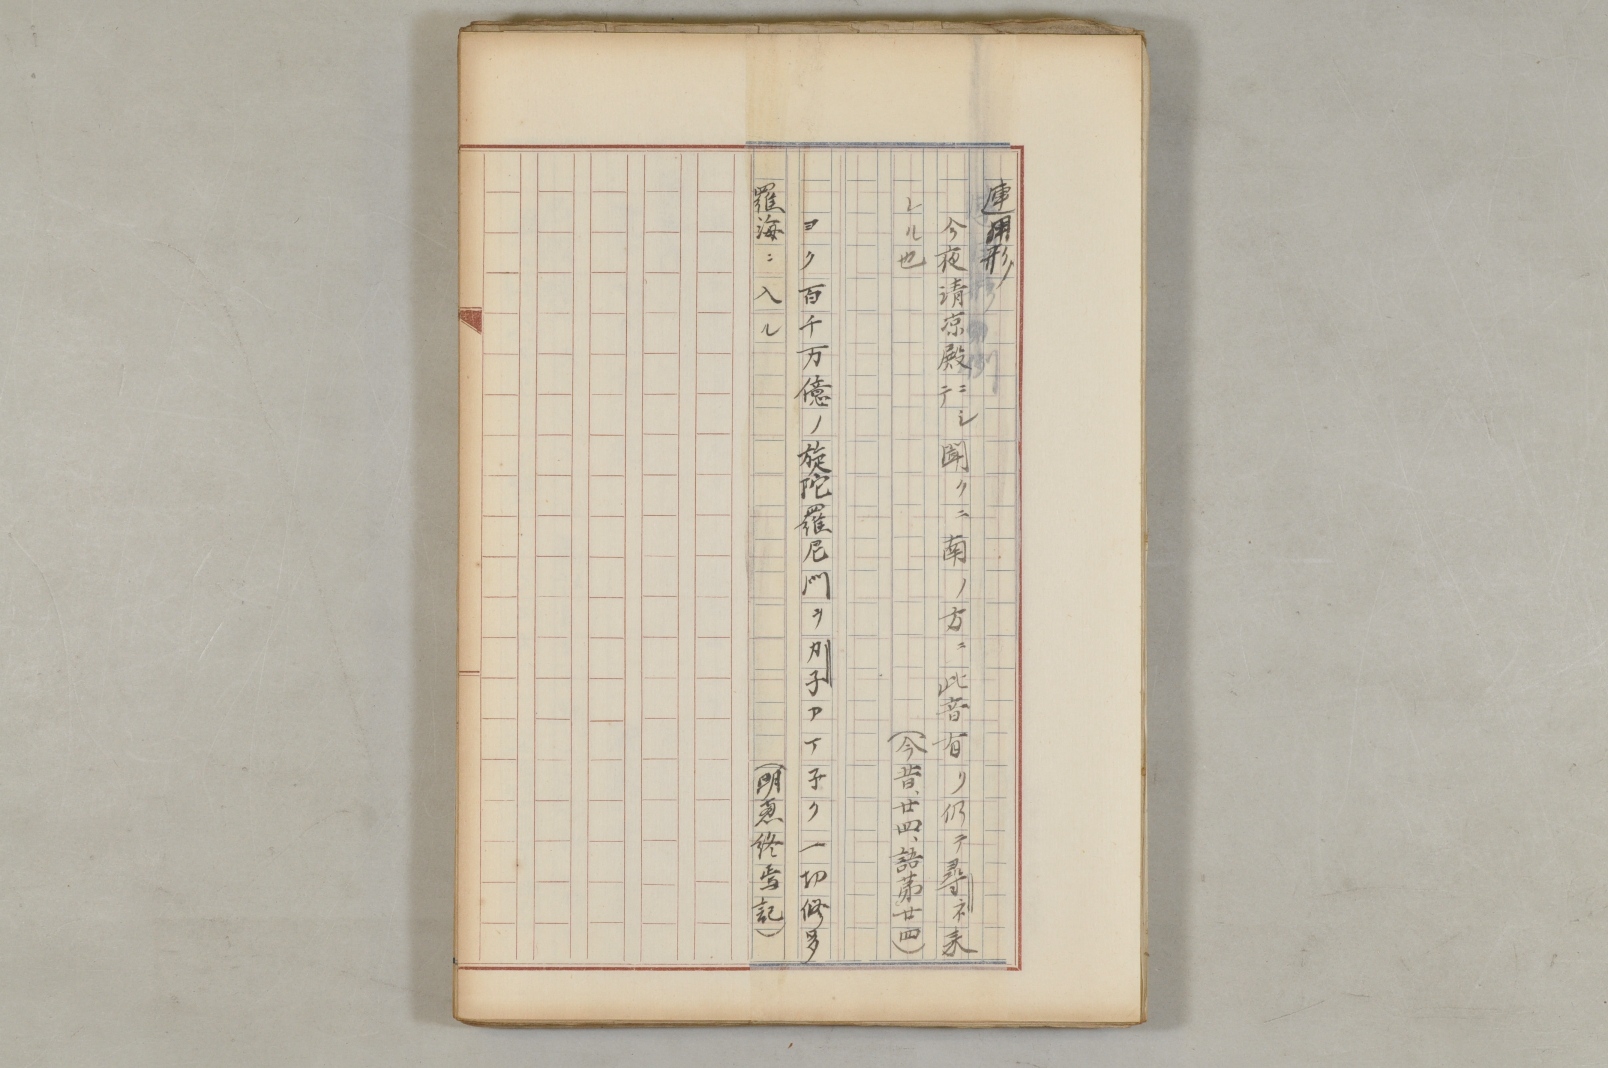 連用形
今夜清凉殿ニテシ聞クニ南ノ方ニ此音有リ仍テ尋ネ来
レル也
(今昔、廿四、語第廿四)
ヨク百千万億ノ旋陀羅尼門ヲカ子アイ子ク一切修多
羅海ニ入ル
(明恵終焉記)